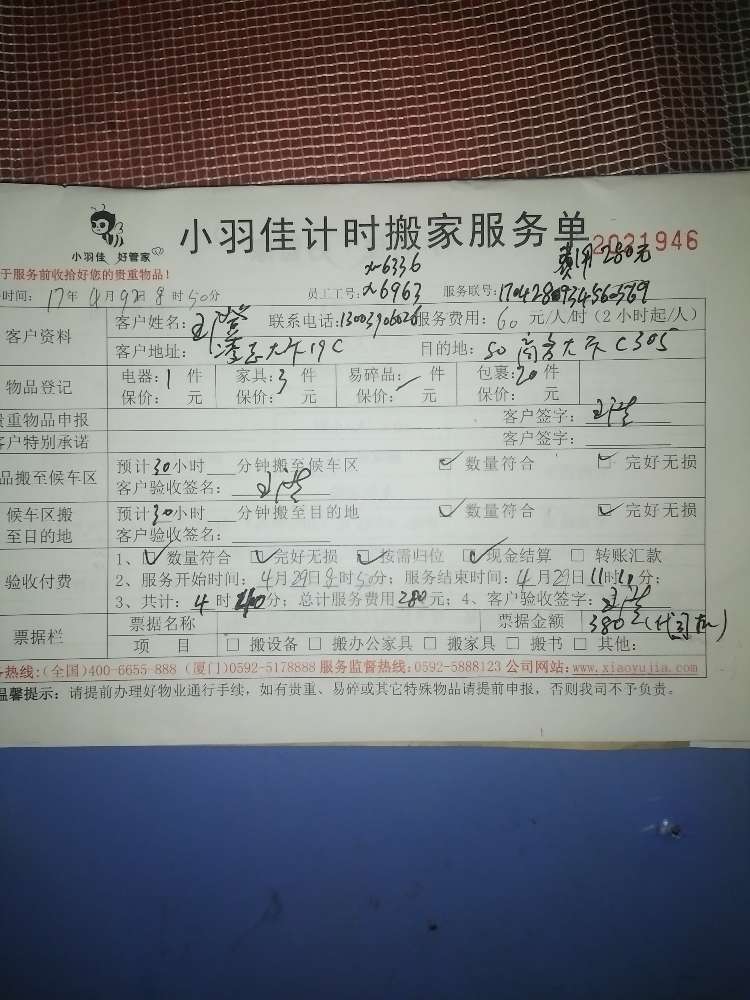 小羽佳 好管家
小羽佳计时搬家服务单 2021946
费用280元
于服务前收拾好您的贵重物品!
x-6336
时间: 17年 4月 29日 8时50分 员工工号: x6963 服务联号:
客户资料 客户姓名: 联系电话: 13003906026 服务费用: 60 元/人/时(2小时起/人)
客户地址: 大下19C 目的地: 50 商务大下C305
物品登记 电器: 1 件 家具: 3 件 易碎品: 件 包裹: 20 件
保价: 元 保价: 元 保价: 元 保价: 元
贵重物品申报 客户签字:
客户特别承诺 客户签字:
品搬至候车区 预计30小时 分钟搬至候车区 数量符合 完好无损
客户验收签名:
候车区搬至目的地 预计30小时 分钟搬至目的地 数量符合 完好无损
客户验收签名:
验收付费 1、数量符合 完好无损 按需归位 现金结算 转账汇款
2、服务开始时间: 4月29日8时50分; 服务结束时间: 4月29日11时10分;
3、共计: 4时40分; 总计服务费用280元; 4、客户验收签字:
票据栏 票据名称 票据金额 380
项 目 搬设备 搬办公家具 搬家具 搬书 其他:
热线:(全国)400-6655-888 (厦门)0592-5178888 服务监督热线:0592-5888123 公司网站:www.xiaoyujia.com
温馨提示: 请提前办理好物业通行手续, 如有贵重、易碎或其它特殊物品请提前申报, 否则我司不予负责。